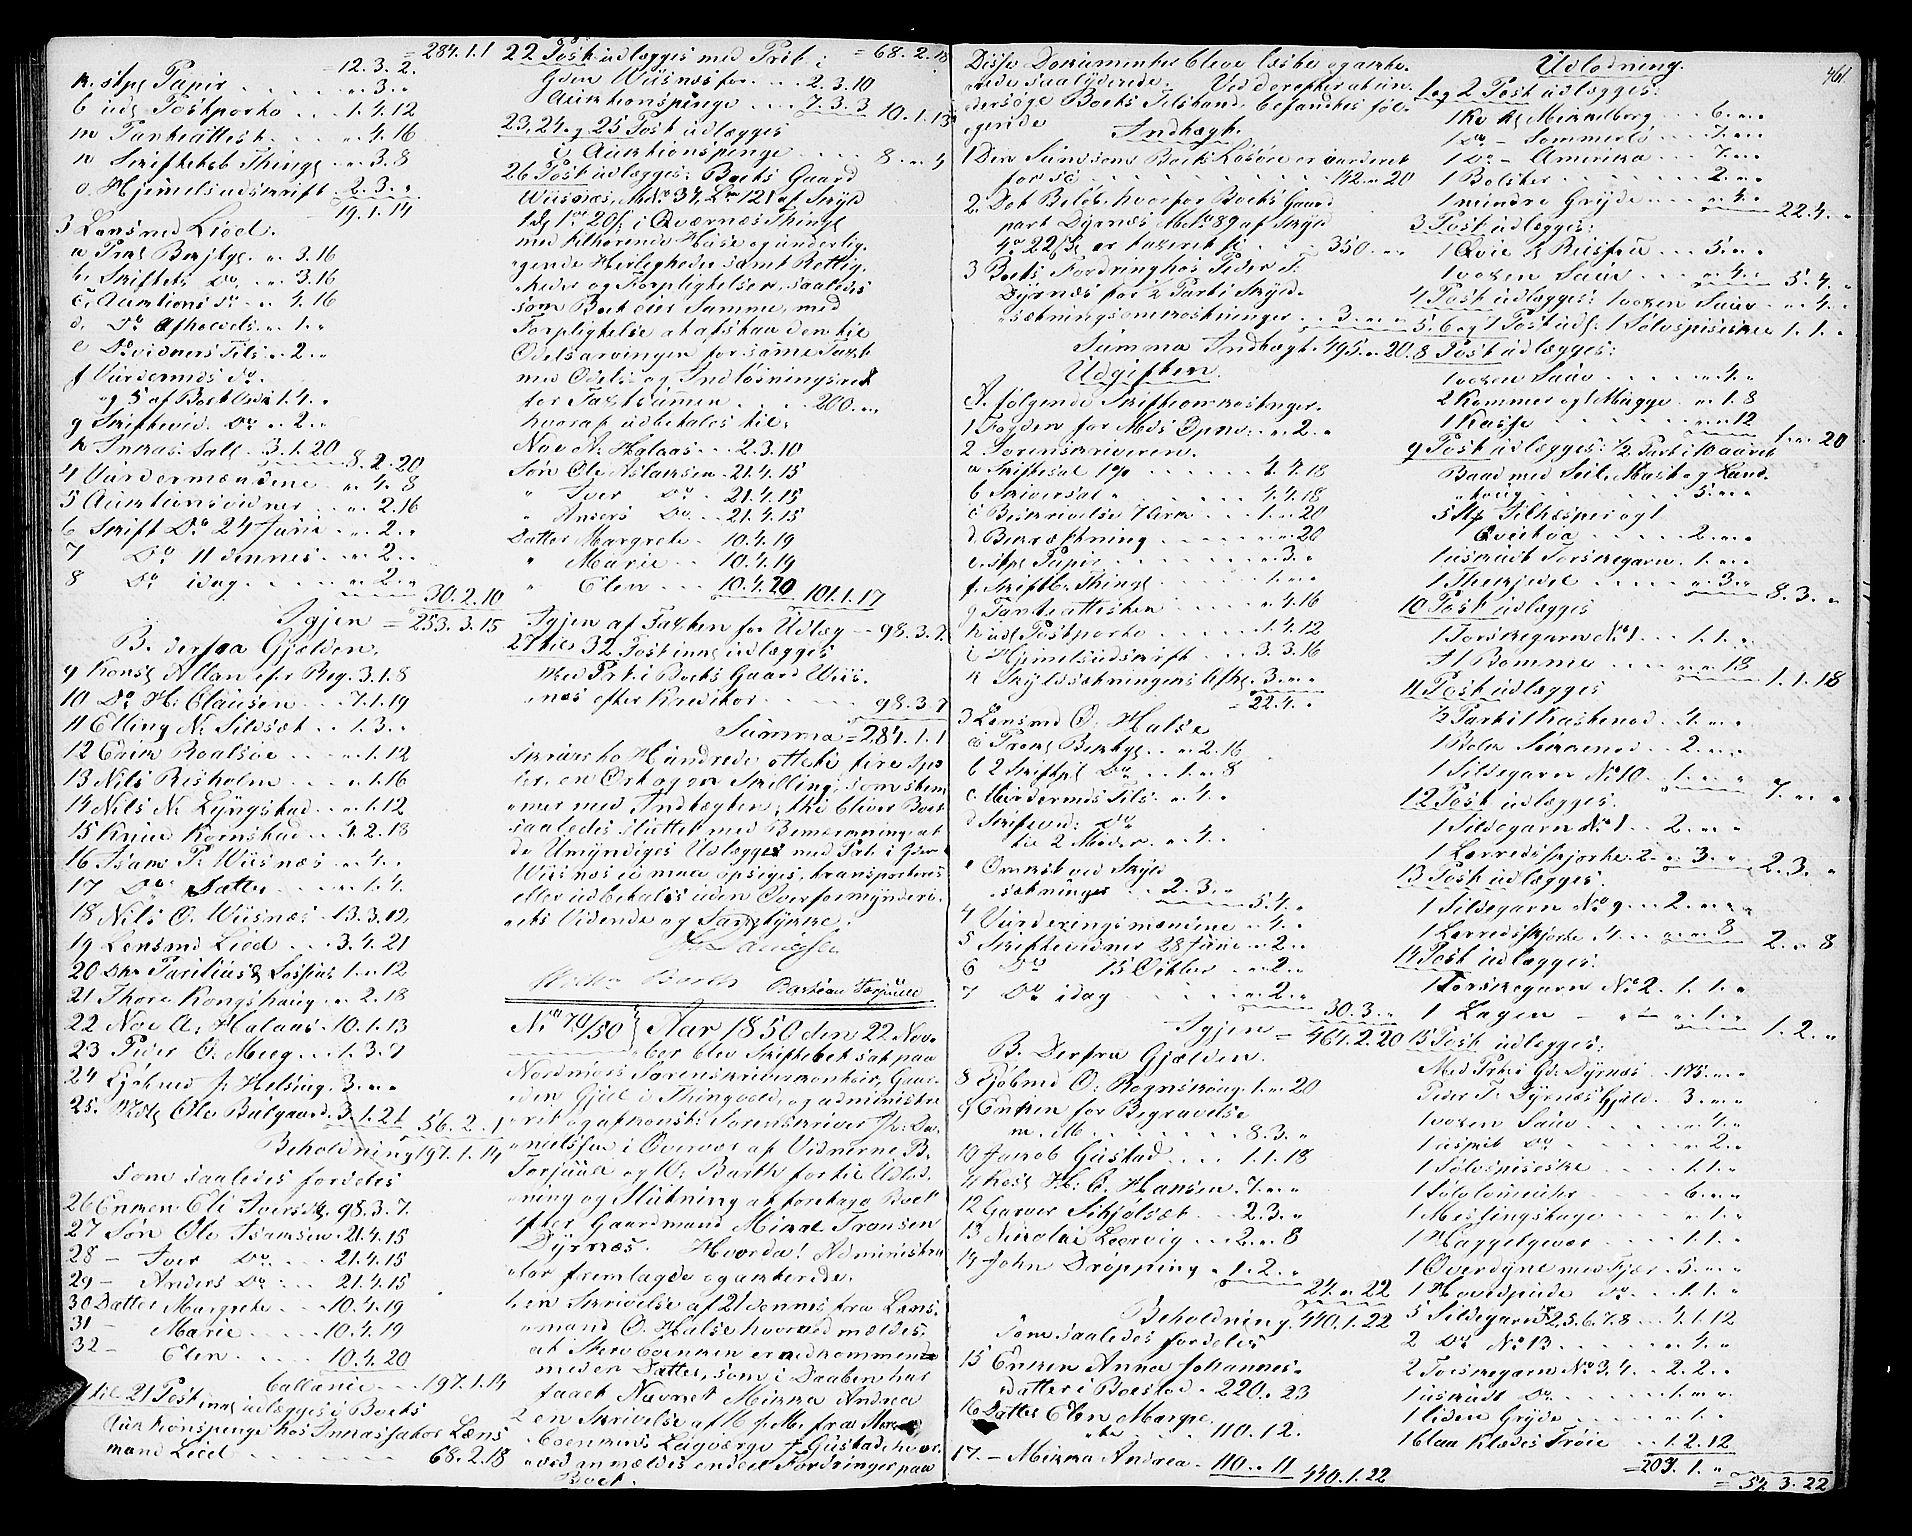 = 284.1.1
12.3.2.
k. stpl Papir ..... " 3 "
l udl Postporto ... 1.4.12
m Panteattest ... " 4.16
n Skifteleb Thingl " 3.8
o. Hjemelsudskrift 2.3. "
19.1.14
3 Lensmd Lied.
a Prkl Berjtgl. " 3.16
b. Skiftets Do. " 3.16
c. Auktions do " 4.16
d. Do Afholdels. " 1. "
e Do vidners Tils. " 2. "
f Vurdermds do.
og 5 af Boet 1.4. "
g Skiftevid. Do " 2. "
h Inkas: Sall. 3.1.20
8.2.20
4 Vurdermændene .. " 4.8
5 Auktionsvidner ... " 2.16
6 Skift Do 24 Juni " 2. "
7 Do 11 dennes " 2 "
8 Do idag ..... " 2 "
30.2.10
Igjen = 253.3.15
B. derfra Gjælden.
9 Konsl Allan efter Reg. 3.1.8
10 Do H: Clausen .. 7.1.19
11 Elling N: Sildsæt .. 1.3. "
12 Endre Roalsøe .... " 1.12
13 Nils Risholm ... " 1.16
14 Nils N: Lyngstad ... " 1.12
15 Knud Kornstad ... 4.2.18
16 Isam P: Wiisnæs " 4. "
17 Do Datter .... " 1.4.
18 Nils O. Wiisnæs .. 13.3.12
19 Lensmd Lied .... 3.4.21
20 Lossius 1. " 12
21 Thore Kongshaug " 2.18
22 Noe A: Halaas. 10.1.13
23 Peder O. Moeg .... 1.3.7
24 Gjøhmd J: Helsing 3. " "
25. Ole Bulgaard 3.1.21
56.2.1
Beholdning 197.1.14
som saaledes fordeles
26 Enken Eli Iversdtr. 98.3.7.
27 Søn Ole Isamsen. 21.4.15
28 — Iver Do ... 21.4.15
29 — Anders Do ... 21.4.15
30 Datter Margrethe ... 10.4.19
31 — Marie ..... 10.4.19
32 — Elen ..... 10.4.20
ballance ... 197.1.14
1 til 21 Post inkl udlægges i Boets
Auktionspenge hos Inkassator Læns
mand Lied ........ 68.2.18
22 Post udlægges med Prit i = 68.2.18
Gden Wiisnæs for ... 2.3.10
Auktionspenge .... 7.3.3 10.1.13
23, 24. og 25 Post udlægges
i Auktionspenge .... 8. " 4
26 Post udlægges: Boets Gaard
Wiisnæs, Md No 34, Lno 121 af Skyld
1 dlr 1 ort 20 s. i Qværnæs Thingl
med tilhørende Huse og underlig-
gende Herligheder samt Rettig-
heder og Forpligtelser, saaledes
som Boet eier Samme, med
Forpligtelse at afstaa den til
Odelsarvingen for samme Taxt
med Odels- og Indløsningsret
for Taxtsumen ..... 200. " "
hvoraf udbetales til:
Noe A: Halaas .... 2.3.10
Søn Ole Islaksen .. 21.4.15
" Iver Do .. 21.4.15
" Anders Do ... 21.4.15
Datter Margrete ... 10.4.19
" Marie ... 10.4.19
" Elen .... 10.4.20 101.1.17
Igjen af Taxten for Udlæg — 98.3.7.
27 til 32 Post inkl udlægges
Med Prt. i Boets Gaard Wiis-
næs efter Kreditor ...... 98.3.7
Summa = 284.1.1
skriver to Hundrede otteti fire Spe
cier, en Ort og en Skilling; som stem
mer med Indtægten; thi bliver Boet
saaledes sluttet med Bemærkning at
de Umyndiges Udlægges med Prt. i Gden
Wiisnæs ei maa opsiges, transporteres
eller udbetales uden Overformynderi-
ets Vidende og Samtykke.
Danielsen
Wilh. Barth Barhau Torjuul
No 70/50 Aar 1850 den 22 Nov-
ber blev Skifteret sat paa
Nordmørs Sorenskriverkontoir, Gaar-
den Gjul i Thingvold, og administre-
ret og afkonst: Sorenskriver Fr: Da-
nielsen i Overvær af Vidnerne B.
Torjuul og W: Barth for til Udlod-
ning og Slutning at foretage Boet
efter Gaardmand Mikal Tronsen
Dyrnæs. Hvorda! Administra-
tor fremlagde og akterede.
1. en Skrivelse af 21 dennes fra Lens-
mand O. Halse hvorved meldes.
at Sterv Eenken er nedkommen
med en Datter, som i Daaben har
faaet Navnet Mikka Andrea
2 en Skrivelse af M f. M. fra
Eenkens Laugværge J. Gustad hvor
ved anmeldes endeel Fordringer paa
Boet.
Disse Dokumenter bleve læste og akte-
rede saalydende. Ved derefter at un-
dersøge Boets Tilstand, befandtes føl-
gende
Indtægt.
1 Den Sumsons Boets Løsøre er vurderet
for se ........... 142. " 20
2. Det Beløb, hvorfor Boets Gaard
part Dyrnæs Mtr 89 af Skyld
4 ort 22 sk er taxeret til .... 350. " "
3 Boets Fordring hos Peder T.
Dyrnæs for 1/2 Part i Skyld-
sætningsomkostninger ... 3. " "
Summa Indtægt. 495. " 20.
Udgiften.
A. følgende Skifteomkostnger.
1 Fogden for Mdls Opnv: .. " 2. "
2 Sorenskriveren.
a Skiftesal 1% ...... 4.4.18
b Skriversal ...... 4.4.18
c Beskrivelse 7 Ark .. 1. " 20
d Bekræftning ...... " " 20
e. stpl Papir ...... " 3. "
f. Skiftb. Thingl .... " 1. "
g Panteattesten .... " 4.16
h udl Postporto ... 1.4.12
i Hjemelsudskrift ... 3.3.16
k Skyldsætningens Afkl. 3. " "
= 22.4. "
3 Lensmd O. Halse
a Prokl Berktgl ... " 2.16
b 2 Skiftpl Do ... 1. " 8
c. Vurdermds Tils. " 4. "
d Skiftevid: do
til 2 Møder .. " 4. "
e Omkst ved Skyld
sætninges .. 2.3. "
5.4. "
4 Vurderingsmændene .. " 4. "
5 Skiftevidner 28 Juni " 2. "
6 Do 15 Oktbr .. " 2. "
7 Do idag ...... " 2. "
30.3. "
Igjen = 461.2.20
B. Derfra Gjælden.
8 Gjøbmd O: Rognskoug. 1. " 20
9 Enken for Begravelse
m. M ........ 8.3. "
10 Jakob Gustad .... 1.1.18
11 Kosl H: C. Hansen .. 7. " "
12 Garver Skjølsæt ... 2.3. "
13 Nikolai Leervig ... 2. " 8
14 John Drøpping .. " 1.2. "
24. " 22
Beholdning. 440.1.22
Som saaledes fordeles
15 Enken Anna Johannes-
datter i Boestod — 220. " 23
16 Datter Elen Margre-
the ... 110. " 12.
17. — Mikka Andrea .. 110. " 11 440.1.22
461
Udlodning.
1 og 2 Post udlægges:
1 Ko kl Mikkelborg ... 6. " "
1 Do — Sommerlø ... 7. " "
1 Do — Amerika .... 7. " "
1 Bolster ..... 2. " "
1 mindre Gryde ... " 4. " 22.4. "
3 Post udlægges:
1 Qvie kl Reisfru ... 5. " "
1 voxen Sauv ..... " 4. " 5.4. "
4 Post udlægges: 1 voxen Sauv .. " 4. "
5, 6 og 7 Post udl: 1 Sølvspiseskee 1.1. "
8 Post udlægges:
1 voxen Sauv ..... " 4. "
2 Kommer og 1 Mugge .. " 1.8
1 Kasse ....... " " 12
1. " 20
9 Post udlægges: 1/2 Part i 10 aaret
Baad med Seil, Mast og Land-
toug ........ 5. " "
5 Stk Filkeper og 1
Qvitvoa ..... 2. " "
1 uskudt Torskegarn. 1. " "
1 Thekjedel ..... " 3. " 8.3. "
10 Post udlægges
1 Torskegarn No 1 ... 1.1. "
1 Bomme ..... " " 18 1.1.18
11 Post udlægges
1/2 Part i Kastenod .. 4. " "
1 Stolx Stikkenod .. 2. " "
1 Sildegarn No 10 .. 1. " " 7. " "
12 Post udlægges.
1 Sildegarn No 1 .. 2. " "
1 Lærredsskjorte 2. " 3. " 2.3. "
13 Post udlægges.
1 Sildegarn No 9 ... 2. " "
1 Lærredsskjorte 4 ... " " 8 2. " 8
14 Post udlægges.
1 Torskegarn No 2. 1.1. "
1 Lagen — " 1. " 1.2. "
15 Post udlægges:
Med Prt i Gd: Dyrnæs. 175. " "
Peder T: Dyrnæs Gjæld. 3. " "
1 voxen Sauv .... " 4. "
1 uspit Do ..... " 2. "
1 Sølvspiseske ... 1.1. "
1 Sølvlomeuhr ... 6. " "
1 Messingstage .. " 1. "
1 Haggelgevær ... 1.1. "
1 Overdyne med Fjær .. 5. " "
1 Hovedpude do .. 1.1. "
5 Sildegarn No 2.5.6.7.8 .. 4.1.12
2 Do No 13 .... " 4. "
2 Torskegarn No 3, 4 .. 2.2. "
1 uskudt Do .... 1. " "
1 liden Gryde .... " 1. "
1 blaa Klædes Trøie ... 1.2.12
= 203.1. "
= 54.3.22